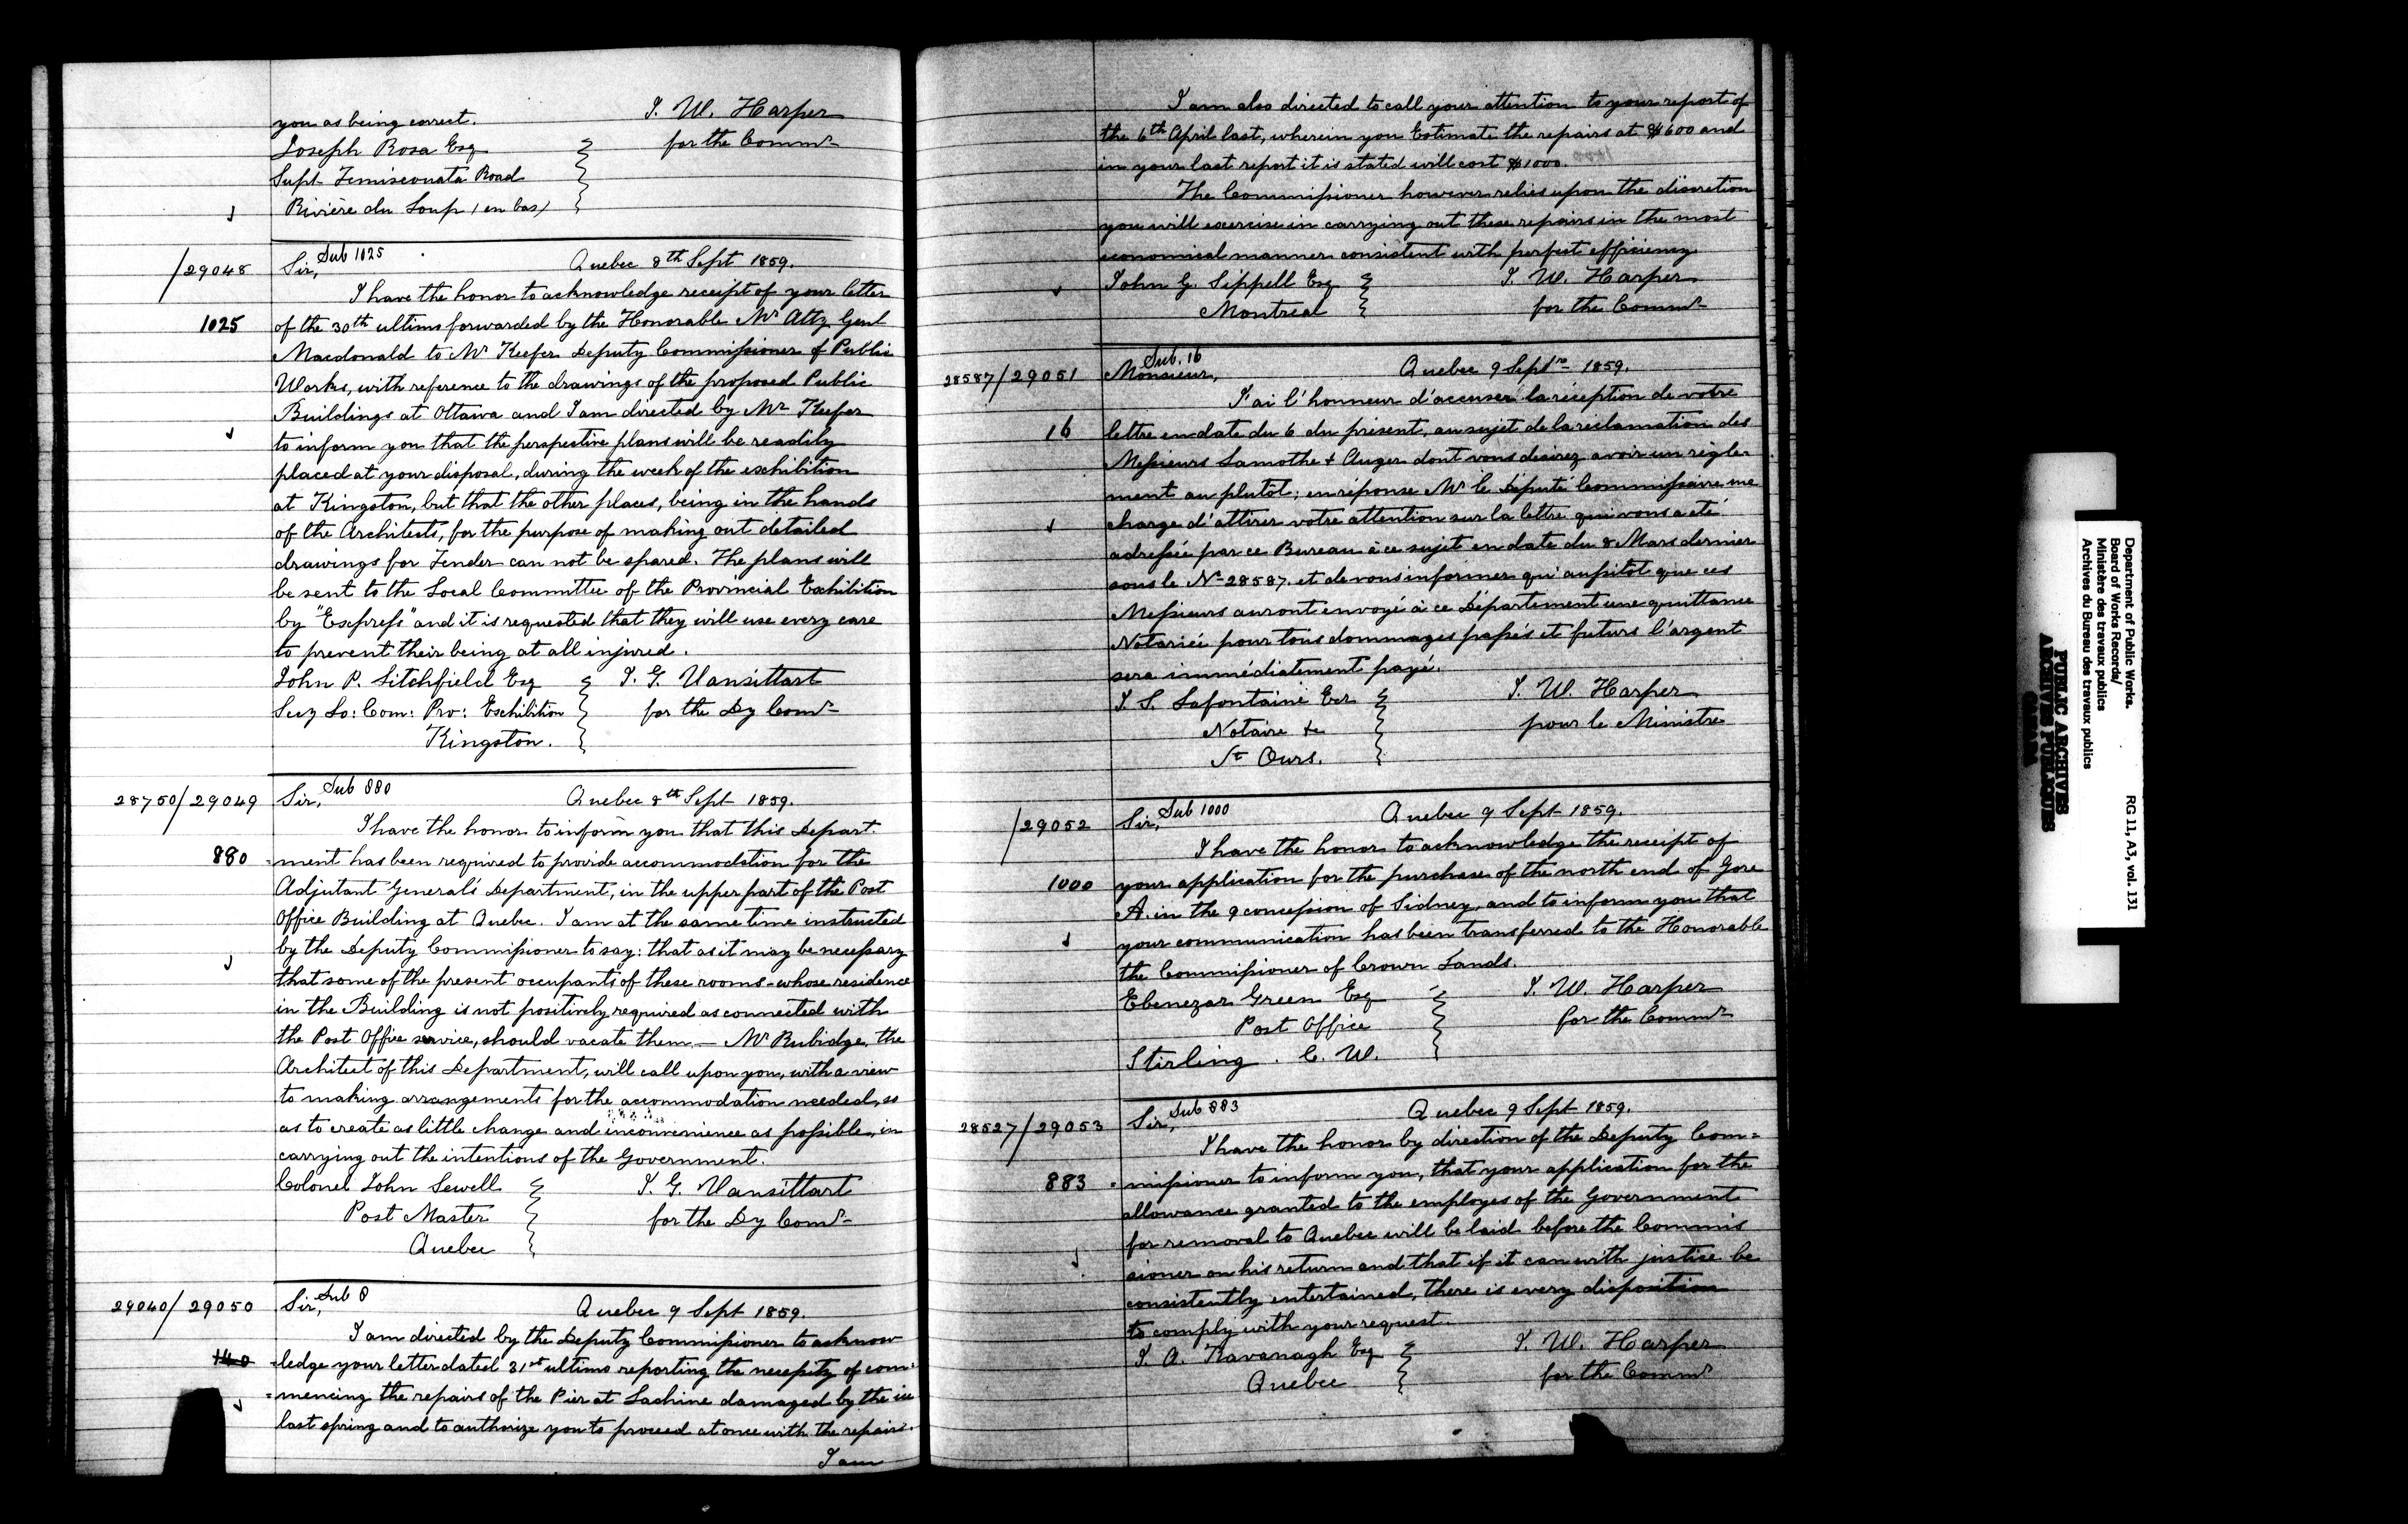 you as being correct.
J. W. Harper
Joseph Rosa Esq
for the Commr
Supt Temisconata Road
Rivière du Loup (en bas)
/29048
Sir, Sub 1025
Quebec 8th Sept 1859.
I have the honor to acknowledge receipt of your letter
1025
of the 30th ultimo forwarded by the Honorable Mr Atty Genl
Macdonald to Mr Keefer Deputy Commissioner of Public
Works, with reference to the drawings of the proposed Public
Buildings at Ottawa and I am directed by Mr Keefer
to inform you that the perspective plans will be readily
placed at your disposal, during the week of the exhibition
at Kingston, but that the other places, being in the hands
of the Architects, for the purpose of making out detailed
drawings for Tender can not be spared. The plans will
be sent to the Local Committee of the Provincial Exhibition
by "Express" and it is requested that they will use every care
to prevent their being at all injured.
John P. Litchfield Esq
J. G. Vansittart
Secy Lo: Com: Pro: Exhibition
for the Dy Comr
Kingston.
28750/29049
Sir, Sub 880
Quebec 8th Sept 1859.
I have the honor to inform you that this Depart
880
=ment has been required to provide accommodation for the
Adjutant General's Department, in the upper part of the Post
Office Building at Quebec. I am at the same time instructed
by the Deputy Commissioner to say: that as it may be necessary
that some of the present occupants of these rooms - whose residence
in the Building is not positively required as connected with
the Post Office service, should vacate them. — Mr Rubidge, the
Architect of this Department, will call upon you, with a view
to making arrangements for the accommodation needed, so
as to create as little change and inconvenience as possible, in
carrying out the intentions of the Government.
Colonel John Sewell
J. G. Vansittart
Post Master
for the Dy Comr
Quebec
29040/29050
Sir, Sub 8
Quebec 9 Sept 1859.
I am directed by the Deputy Commissioner to acknow
140
=ledge your letter dated 31st ultimo reporting the necessity of com=
=mencing the repairs of the Pier at Lachine damaged by the ice
last spring and to authorize you to proceed at once with the repairs.
I am
I am also directed to call your attention to your report of
the 6th April last, wherein you Estimate the repairs at $600 and
in your last report it is stated will cost $1000.
The Commissioner however relies upon the discretion
you will exercise in carrying out these repairs in the most
economical manner consistent with perfect efficiency
John G. Sippell Esq
J. W. Harper
Montreal
for the Commr
28587/29051
Sub. 16
Monsieur,
Quebec 9 Septre 1859.
J'ai l'honneur d'accuser la réception de votre
16
lettre en date du 6 du présent, au sujet de la réclamation des
Messieurs Lamothe & Auger dont vous desirez avoir un régle=
ment au plutôt; en réponse Mr le Députe Commissaire me
charge d'attirer votre attention sur la lettre qui vous a été
adressée par ce Bureau à ce sujet en date du 8 Mars dernier
sous le No 28587. et de vous informer qu'aussitôt que ces
Messieurs auront envoyé à ce Département une quittance
Notariée pour tous dommages passés et futurs l'argent
sera immédiatement payé.
J. S. Lafontaine Ecr
J. W. Harper
Notaire &c
pour le Ministre
St Ours.
/29052
Sir, Sub 1000
Quebec 9 Sept 1859.
I have the honor to acknowledge the receipt of
1000
your application for the purchase of the north end of Gore
A. in the 9 concession of Sidney, and to inform you that
your communication has been transferred to the Honorable
the Commissioner of Crown Lands.
Ebenezar Green Esq
J. W. Harper
Post Office
for the Commr
Stirling. C. W.
28527/29053
Sir, Sub 883
Quebec 9 Sept 1859.
I have the honor by direction of the Deputy Com=
883
=missioner to inform you, that your application for the
allowance granted to the employes of the Government
for removal to Quebec will be laid before the Commis
sioner on his return and that if it can with justice be
consistently entertained, there is every disposition
to comply with your request.
J. A. Kavanagh Esq
J. W. Harper
Quebec
for the Commr
Department of Public Works.
Board of Works Records/
Ministère des travaux publics
Archives du Bureau des travaux publics
RG 11, A3, vol. 131
PUBLIC ARCHIVES
ARCHIVES PUBLIQUES
CANADA